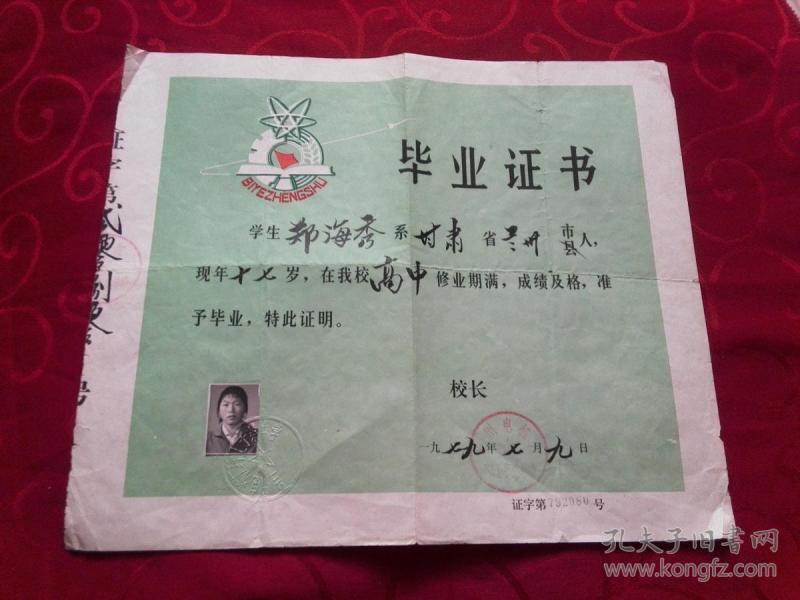 BIYEZHENGSHU
毕业证书
学生郑海秀系甘肃省兰州市县人，
现年十七岁，在我校高中修业期满，成绩及格，准
予毕业，特此证明。
校长
一九七九年七月九日
证字第792080号
证字第
号
孔夫子旧书网
www.kongfz.com